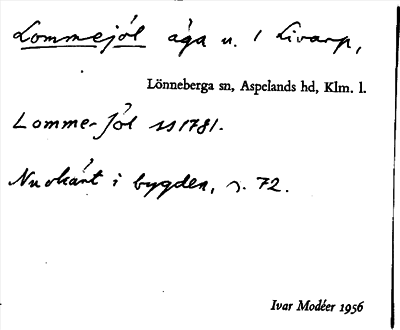 Lommejöl äga u. / Livarp,
Lönneberga sn, Aspelands hd, Klm. l.
Lomme-Jöl 1781.
i bygden, s. 72.
Ivar Modéer 1956